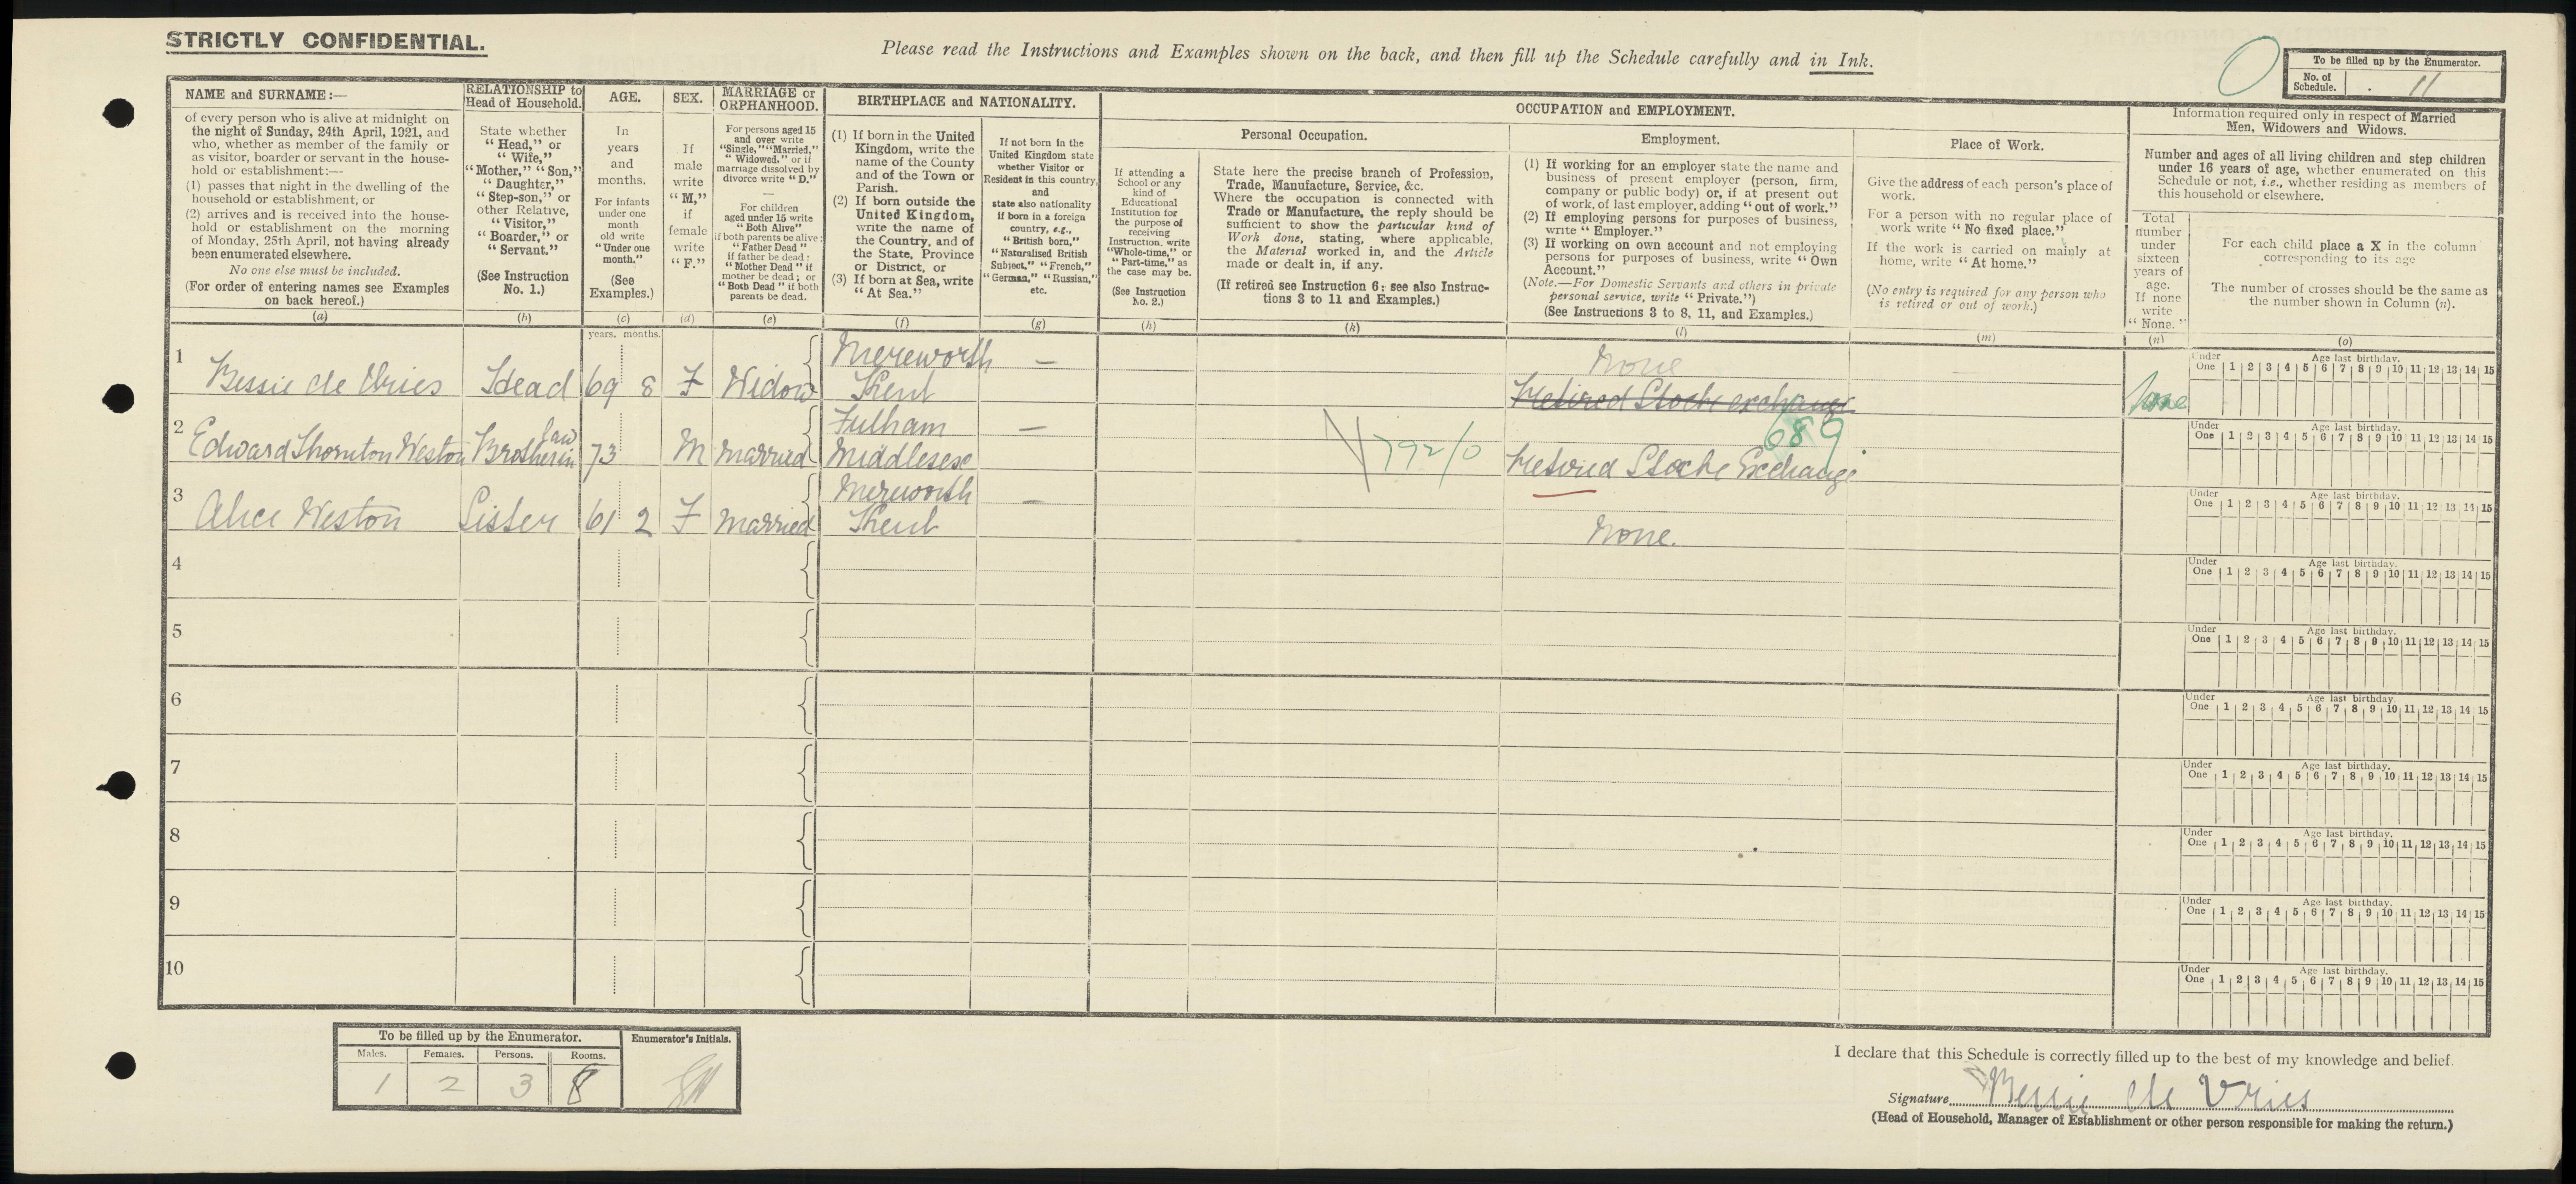 STRICTLY CONFIDENTIAL.
Please read the Instructions and Examples shown on the back, and then fill up the Schedule carefully and in Ink.
To be filled up by the Enumerator.
No. of Schedule. 11
NAME and SURNAME:—
of every person who is alive at midnight on
the night of Sunday, 24th April, 1921, and
who, whether as member of the family or
as visitor, boarder or servant in the house-
hold or establishment:—
(1) passes that night in the dwelling of the
household or establishment, or
(2) arrives and is received into the house-
hold or establishment on the morning
of Monday, 25th April, not having already
been enumerated elsewhere.
No one else must be included.
(For order of entering names see Examples
on back hereof.)
(a)
RELATIONSHIP to
Head of Household.
State whether
"Head," or
"Wife,"
"Mother," "Son,"
"Daughter,"
"Step-son," or
other Relative,
"Visitor,"
"Boarder," or
"Servant."
(See Instruction
No. 1.)
(b)
AGE.
In
years
and
months.
For infants
under one
month
old write
"Under one
month."
(See
Examples.)
(c)
years. months.
SEX.
If
male
write
"M,"
if
female
write
"F."
(d)
MARRIAGE or
ORPHANHOOD.
For persons aged 15
and over write
"Single," "Married,"
"Widowed," or if
marriage dissolved by
divorce write "D."
—
For children
aged under 15 write
"Both Alive"
if both parents be alive:
"Father Dead"
if father be dead:
"Mother Dead" if
mother be dead; or
"Both Dead" if both
parents be dead.
(e)
BIRTHPLACE and NATIONALITY.
(1) If born in the United
Kingdom, write the
name of the County
and of the Town or
Parish.
(2) If born outside the
United Kingdom,
write the name of
the Country, and of
the State, Province
or District, or
(3) If born at Sea, write
"At Sea."
(f)
If not born in the
United Kingdom state
whether Visitor or
Resident in this country,
and
state also nationality
if born in a foreign
country, e.g.,
"British born,"
"Naturalised British
Subject," "French,"
"German," "Russian,"
etc.
(g)
OCCUPATION and EMPLOYMENT.
If attending a
School or any
kind of
Educational
Institution for
the purpose of
receiving
Instruction, write
"Whole-time," or
"Part-time," as
the case may be.
(See Instruction
No. 2.)
(h)
Personal Occupation.
State here the precise branch of Profession,
Trade, Manufacture, Service, &c.
Where the occupation is connected with
Trade or Manufacture, the reply should be
sufficient to show the particular kind of
Work done, stating, where applicable,
the Material worked in, and the Article
made or dealt in, if any.
(If retired see Instruction 6; see also Instruc-
tions 3 to 11 and Examples.)
(k)
Employment.
(1) If working for an employer state the name and
business of present employer (person, firm,
company or public body) or, if at present out
of work, of last employer, adding "out of work."
(2) If employing persons for purposes of business,
write "Employer."
(3) If working on own account and not employing
persons for purposes of business, write "Own
Account."
(Note.—For Domestic Servants and others in private
personal service, write "Private.")
(See Instructions 3 to 8, 11, and Examples.)
(l)
Place of Work.
Give the address of each person's place of
work.
For a person with no regular place of
work write "No fixed place."
If the work is carried on mainly at
home, write "At home."
(No entry is required for any person who
is retired or out of work.)
(m)
Information required only in respect of Married
Men, Widowers and Widows.
Number and ages of all living children and step children
under 16 years of age, whether enumerated on this
Schedule or not, i.e., whether residing as members of
this household or elsewhere.
Total
number
under
sixteen
years of
age.
If none
write
"None."
(n)
For each child place a X in the column
corresponding to its age
The number of crosses should be the same as
the number shown in Column (n).
(o)
1 Bessie de Vries Head 69 8 F Widow Mereworth Kent — None
Retired Stock exchange
None
Under One 1 2 3 4 5 6 7 8 9 10 11 12 13 14 15 Age last birthday.
2 Edward Thornton Weston Brother in law 73 M Married Fulham Middlesex — 792/0 689
Retired Stock Exchange
Under One 1 2 3 4 5 6 7 8 9 10 11 12 13 14 15 Age last birthday.
3 Alice Weston Sister 61 2 F Married Mereworth Kent — None.
Under One 1 2 3 4 5 6 7 8 9 10 11 12 13 14 15 Age last birthday.
4 Under One 1 2 3 4 5 6 7 8 9 10 11 12 13 14 15 Age last birthday.
5 Under One 1 2 3 4 5 6 7 8 9 10 11 12 13 14 15 Age last birthday.
6 Under One 1 2 3 4 5 6 7 8 9 10 11 12 13 14 15 Age last birthday.
7 Under One 1 2 3 4 5 6 7 8 9 10 11 12 13 14 15 Age last birthday.
8 Under One 1 2 3 4 5 6 7 8 9 10 11 12 13 14 15 Age last birthday.
9 Under One 1 2 3 4 5 6 7 8 9 10 11 12 13 14 15 Age last birthday.
10 Under One 1 2 3 4 5 6 7 8 9 10 11 12 13 14 15 Age last birthday.
To be filled up by the Enumerator.
Enumerator's Initials.
Males. Females. Persons. Rooms.
1 2 3 8
I declare that this Schedule is correctly filled up to the best of my knowledge and belief.
Signature Bessie de Vries
(Head of Household, Manager of Establishment or other person responsible for making the return.)